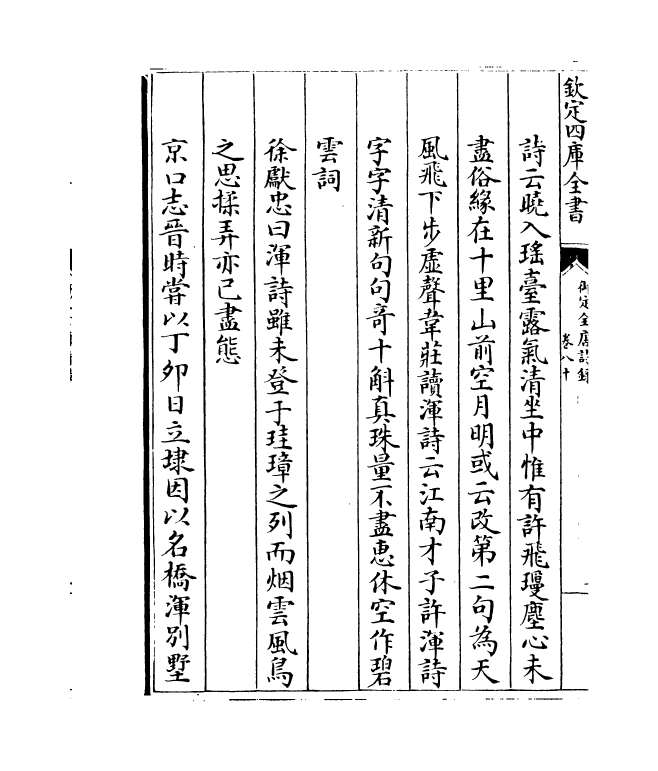 欽定四庫全書
御定全唐詩錄
卷八十
詩云曉入瑤臺露氣清坐中惟有許飛瓊塵心未
盡俗緣在十里山前空月明或云改第二句為天
風飛下步虛聲韋莊讀渾詩云江南才子許渾詩
字字清新句句奇十斛真珠量不盡惠休空作碧
雲詞
徐獻忠曰渾詩雖未登于珪璋之列而烟雲風鳥
之思揉弄亦已盡態
京口志晉時嘗以丁卯日立埭因以名橋渾別墅